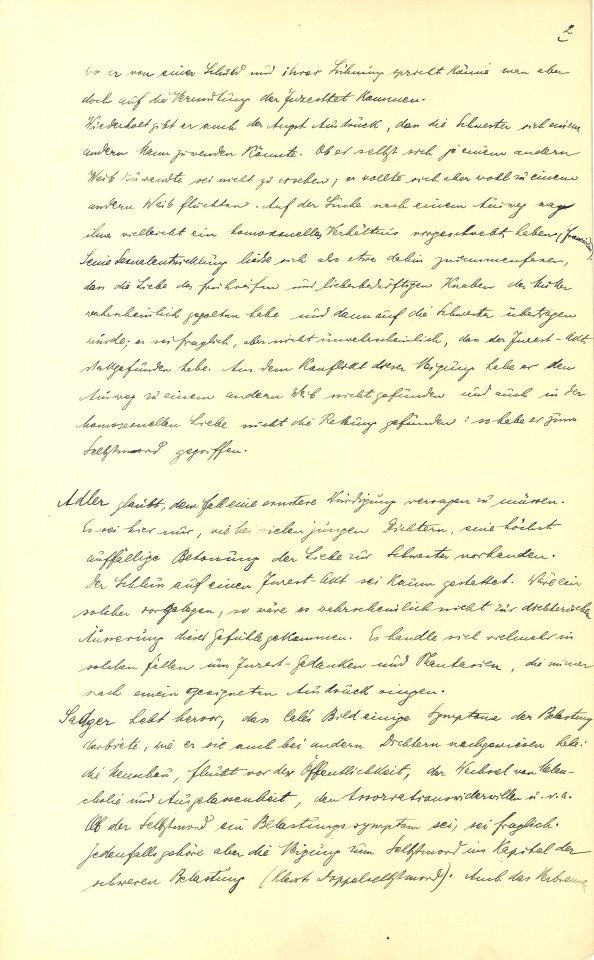 2
wo er von einer Schuld und ihrer Sühnung spricht könne man aber
doch auf die Vermutung der Inzesttat kommen.
Wiederholt gibt er auch der Angst Ausdruck, dass die Schwester sich einem
andern Mann zuwenden könnte. Ob er selbst sich je einem andern
Weib zuwandte sei nicht zu ersehen; er wollte sich aber wohl zu einem
andern Weib flüchten. Auf der Suche nach einem Ausweg mag
ihm vielleicht ein homosexuelles Verhältnis vorgeschwebt haben
Seine Sexualentwicklung liesse sich also etwa dahin zusammenfassen,
dass die Liebe des frühreifen und liebebedürftigen Knaben der Mutter
wahrscheinlich gegolten habe und dann auf die Schwester übertragen
wurde; es sei fraglich, aber nicht unwahrscheinlich, dass der Inzest-Akt
stattgefunden habe. Aus dem Konflikt dieser Neigung habe er den
Ausweg zu einem andern Weib nicht gefunden und auch in der
homosexuellen Liebe nicht die Rettung gefunden: so habe er zum
Selbstmord gegriffen.
Adler glaubt, dem Fall eine ernstere Würdigung versagen zu müssen.
Es sei hier nur, wie bei vielen jungen Dichtern, eine höchst
auffällige Betonung der Liebe zur Schwester vorhanden.
Der Schluss auf einen Inzest-Akt sei kaum gestattet. Wäre ein
solcher vorgelegen, so wäre es wahrscheinlich nicht zur dichterischen
Äusserung dieses Gefühls gekommen. Es handle sich vielmehr in
solchen Fällen um Inzest-Gedanken und Phantasien, die immer
nach einem geeigneten Ausdruck ringen.
Sadger hebt hervor, dass Bild einige Symptome der Belastung
darbiete, wie er sie auch bei andern Dichtern nachgewiesen habe:
die Menschen, flucht vor der Öffentlichkeit, der Wechsel von Melan-
cholie und Ausgelassenheit, den Assoziationswiderwillen u. s. a.
Ob der Selbstmord ein Belastungssymptom sei, sei fraglich.
Jedenfalls gehöre aber die Neigung zum Selbstmord ins Kapitel der
schweren Belastung (Kleists Doppelselbstmord). Auch das